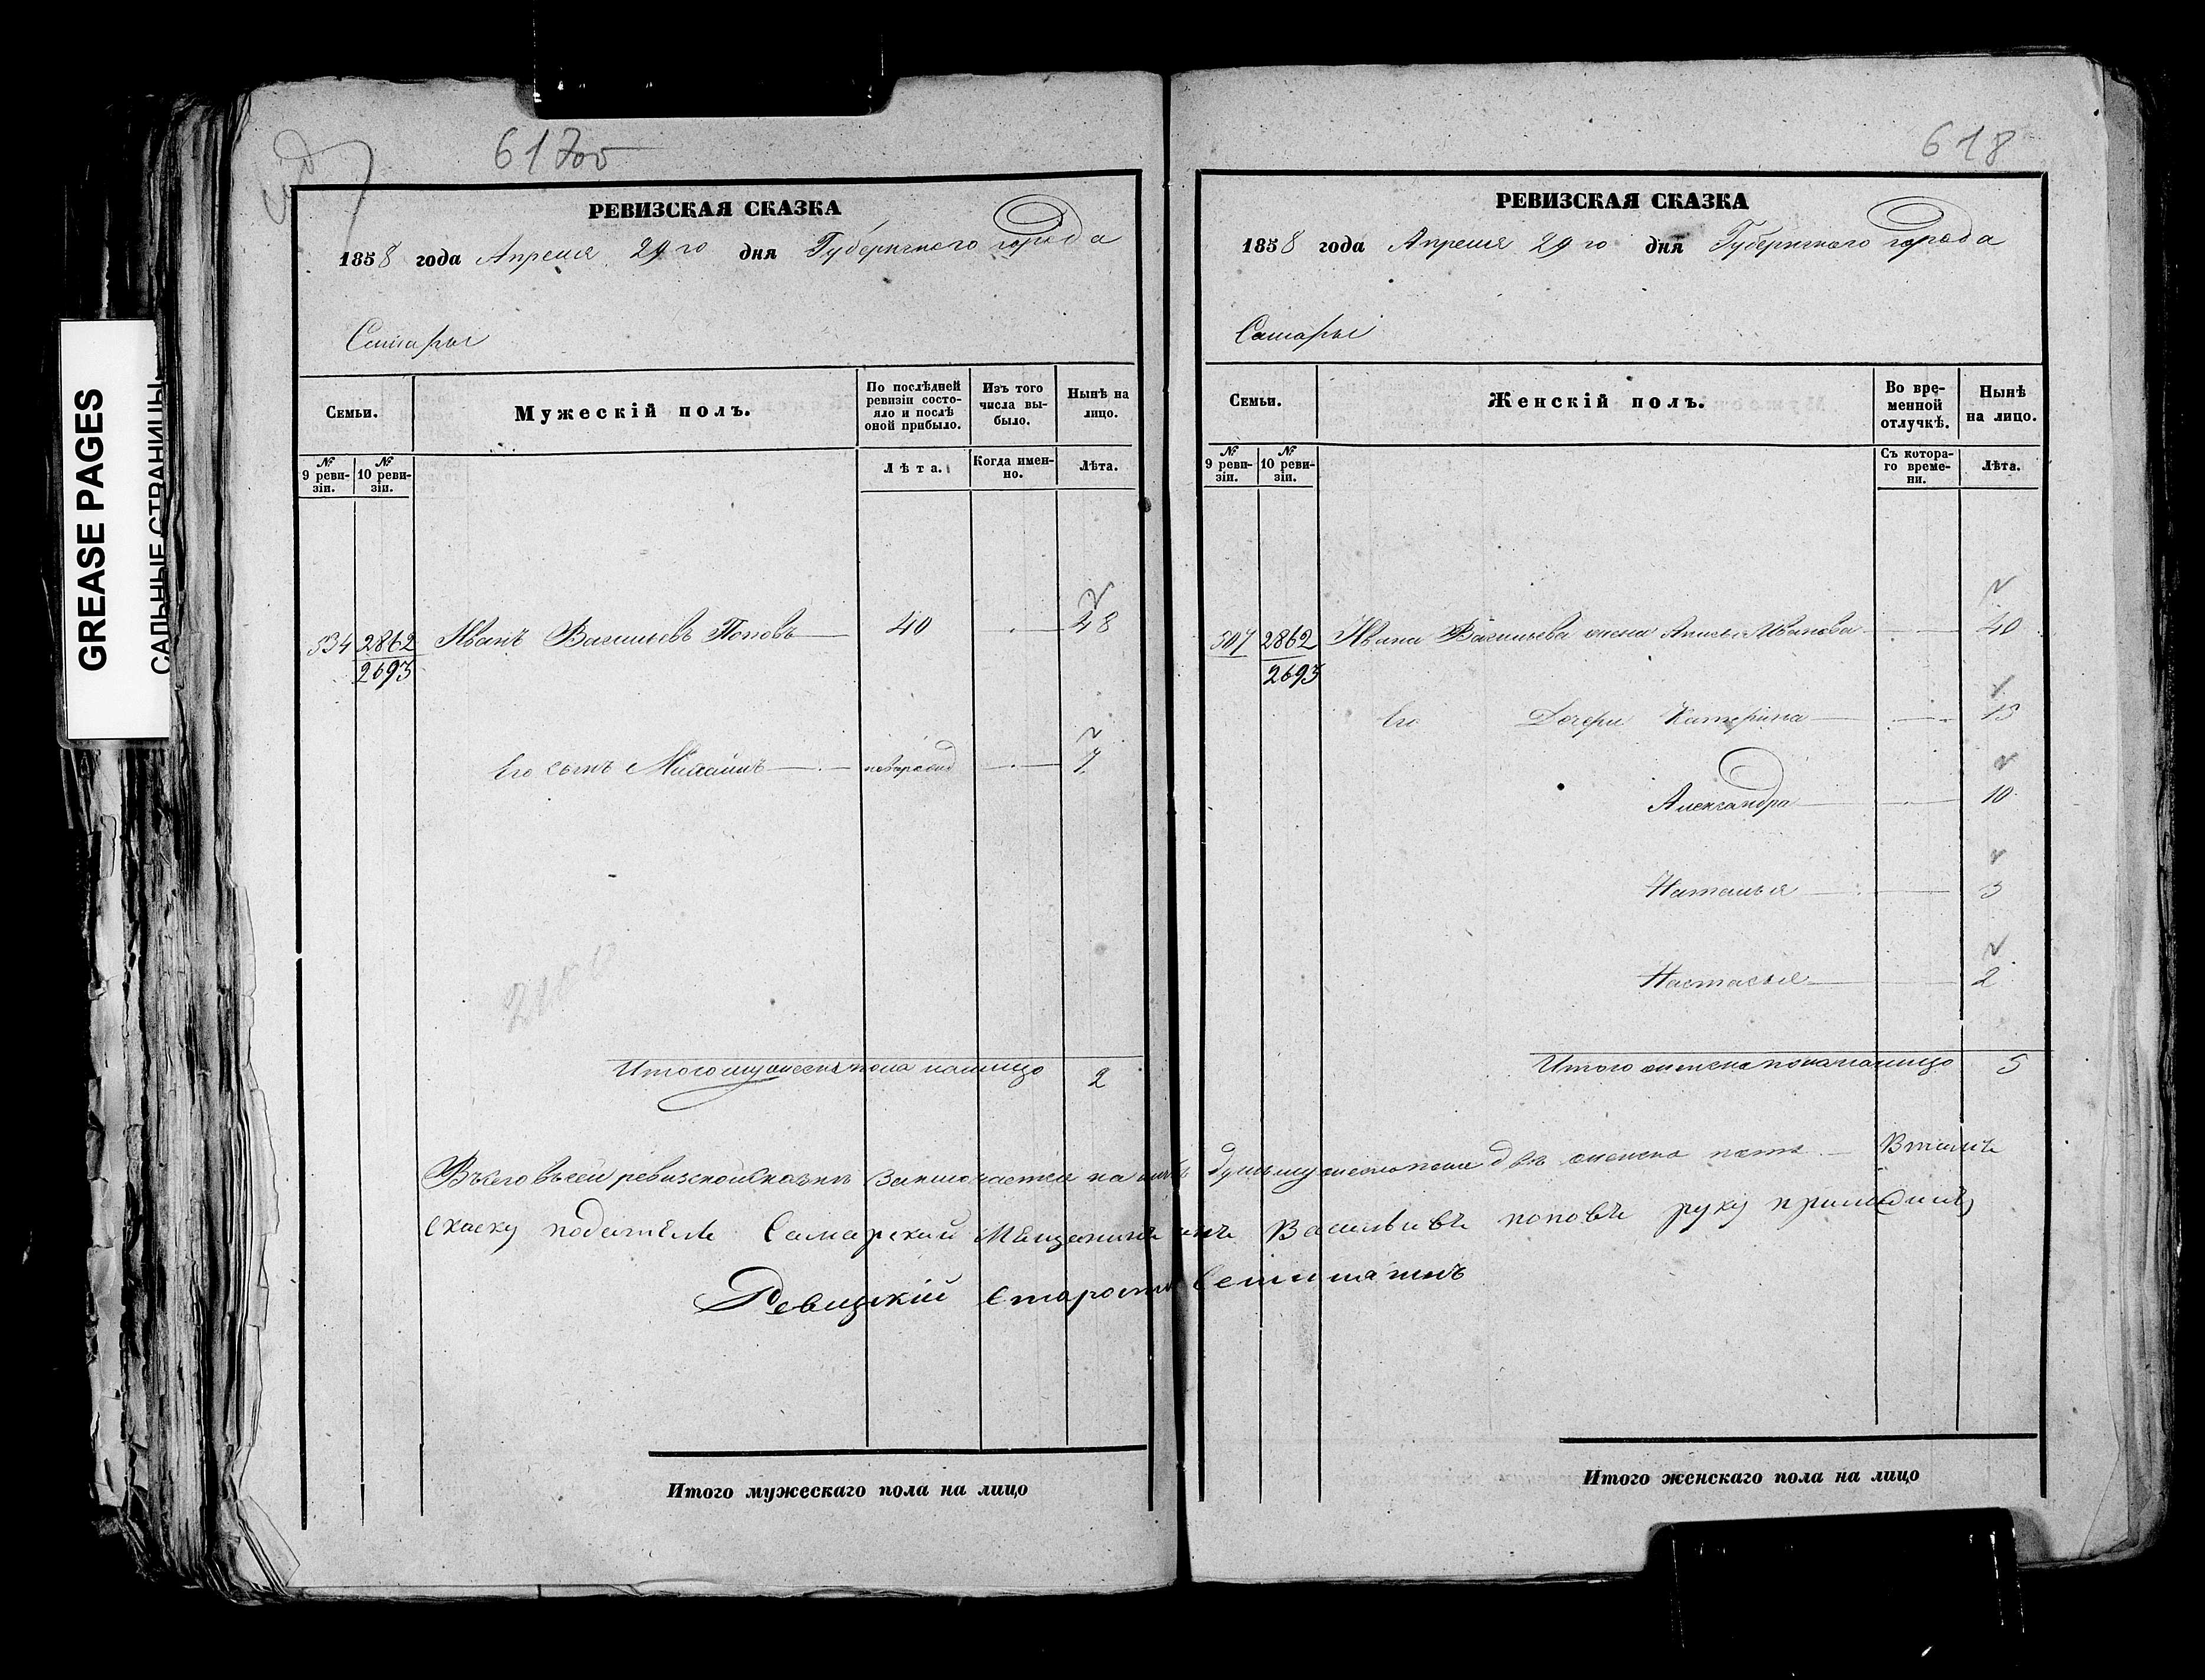 GREASE PAGES
САЛЬНЫЕ СТРАНИЦЫ
617об
РЕВИЗСКАЯ СКАЗКА
1858 года Апреля 29го дня Губернскаго города
Самары
Семьи.
Мужескій полъ.
По послѣдней ревизіи состояло и послѣ оной прибыло.
Изъ того числа выбыло.
Нынѣ на лицо.
№ 9 ревизіи.
№ 10 ревизіи.
Лѣта.
Когда именно.
Лѣта.
534 2862 Иванъ Васильевъ Поповъ 40 48
2693
Его сынъ Михаилъ 7
Итого мужеска пола налицо 2
Итого мужескаго пола на лицо
618
РЕВИЗСКАЯ СКАЗКА
1858 года Апреля 29го дня Губернскаго города
Самары
Семьи.
Женскій полъ.
Во временной отлучкѣ.
Нынѣ на лицо.
№ 9 ревизіи.
№ 10 ревизіи.
Съ котораго времени.
Лѣта.
507 2862 Ивана Васильева жена Иванова 40
2693
Его Дочери Катерина
Александра 10
Наталья 3
Настасья 2
Итого женска пола налицо 5
Всего въ сей ревизской сказки заключается на лицо душъ мужеска пола два женска пять
скаску подателе Самарский Мещанинъ Васильивъ поповъ руку приложилъ
Ревизкій староста
Итого женскаго пола на лицо